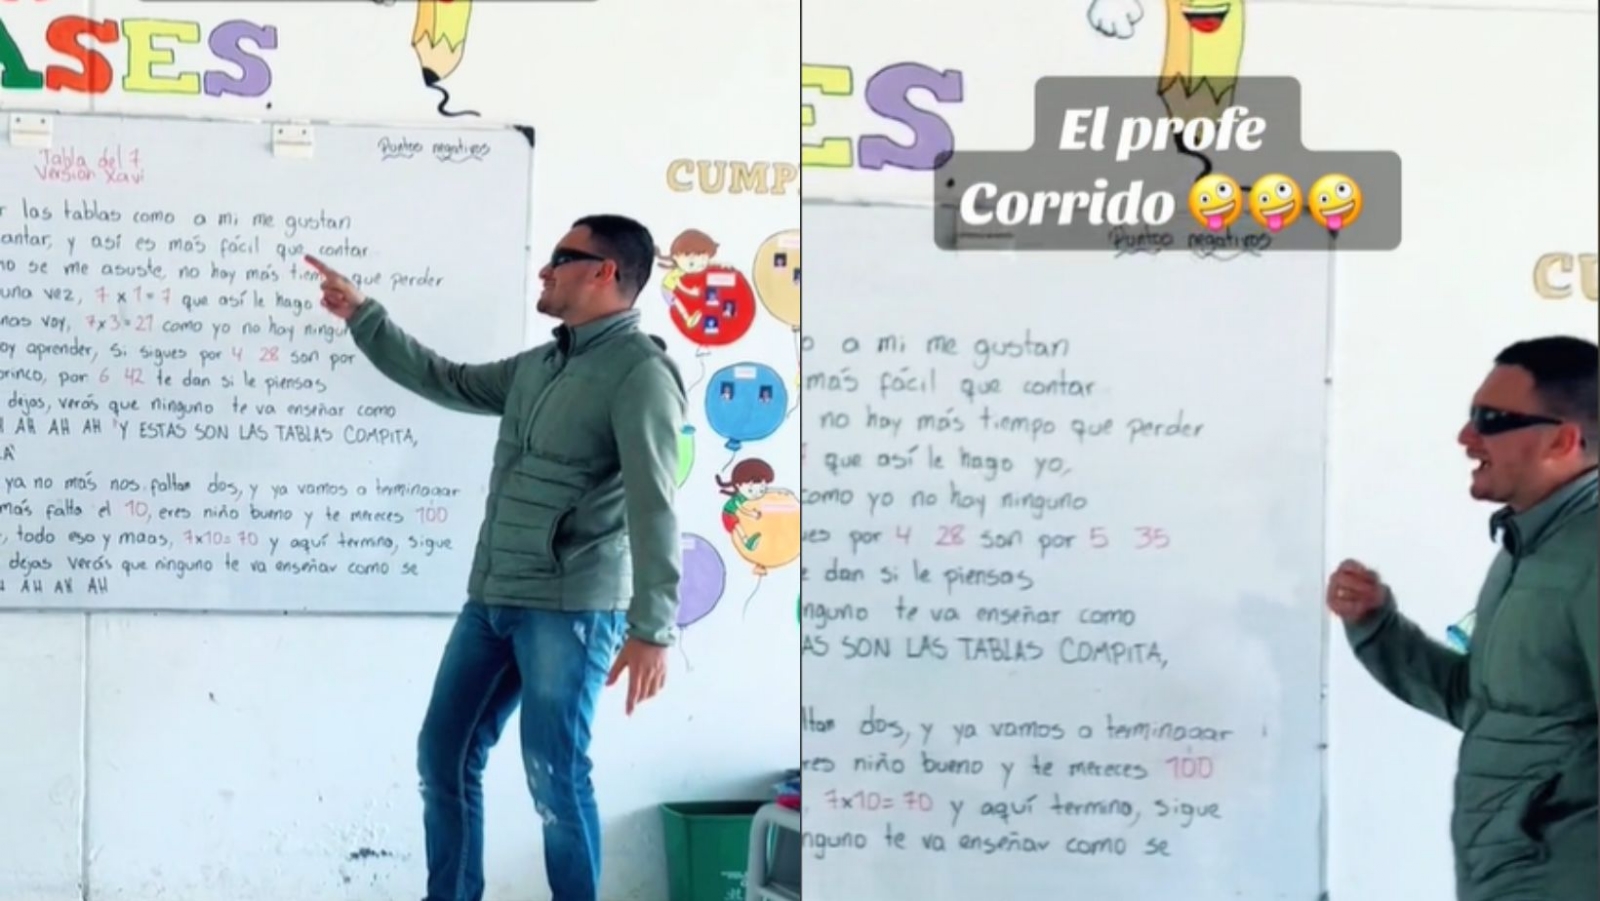 ASES
Puntos negativos
Tabla del 7
Versión Xavi
CUMP
r las tablas como a mi me gustan
antar, y así es más fácil que contar
no se me asuste, no hay más tiem que perder
una vez, 7 x 1 = 7 que así le hago
nas voy, 7x3=21 como yo no hay ningun
oy aprender, si sigues por 4 28 son por
brinco, por 6 42 te dan si le piensas
dejas, verás que ninguno te va enseñar como
H AH AH AH "Y ESTAS SON LAS TABLAS COMPITA,
A"
ya no más nos faltan dos, y ya vamos a terminaaar
más falta el 10, eres niño bueno y te mereces 100
, todo eso y maas, 7x10=70 y aquí termino, sigue
dejas verás que ninguno te va enseñar como se
H AH AH AH
ES
El profe
Corrido 🤪🤪🤪
Puntos negativos
CU
o a mi me gustan
más fácil que contar
no hay más tiempo que perder
que así le hago yo,
como yo no hay ninguno
ues por 4 28 son por 5 35
e dan si le piensas
nguno te va enseñar como
AS SON LAS TABLAS COMPITA,
ltan dos, y ya vamos a terminaaar
res niño bueno y te mereces 100
7x10=70 y aquí termino, sigue
nguno te va enseñar como se